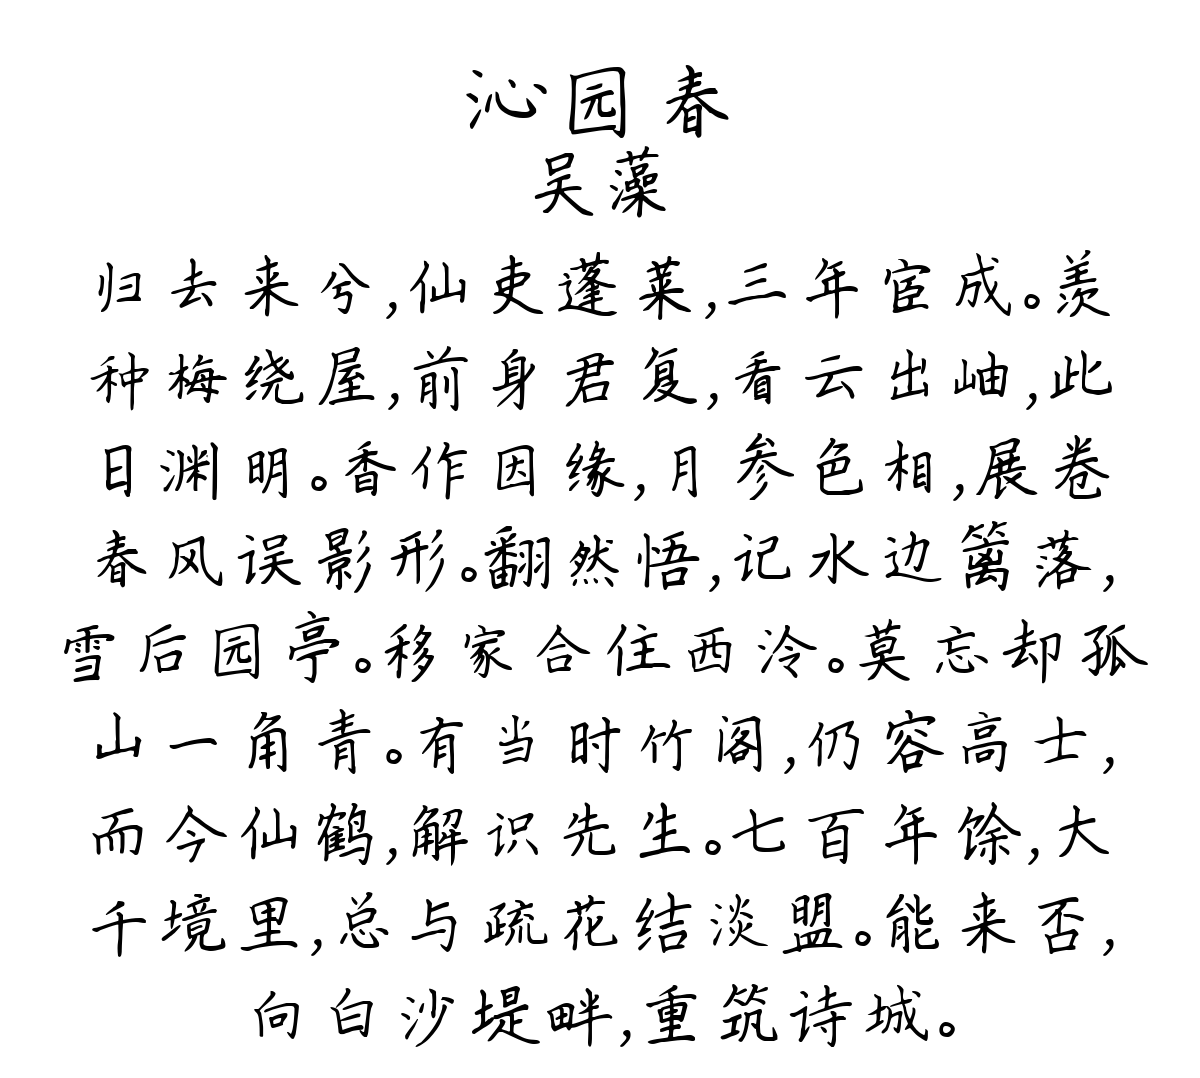 沁园春
吴藻
归去来兮,仙吏蓬莱,三年宦成。羡
种梅绕屋,前身君复,看云出岫,此
日渊明。香作因缘,月参色相,展卷
春风误影形。翻然悟,记水边篱落,
雪后园亭。移家合住西泠。莫忘却孤
山一角青。有当时竹阁,仍容高士,
而今仙鹤,解识先生。七百年馀,大
千境里,总与疏花结淡盟。能来否,
向白沙堤畔,重筑诗城。